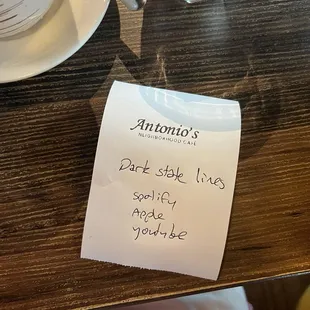 Antonio's
NEIGHBORHOOD CAFE
Dark state lines
spotify
Apple
youtube